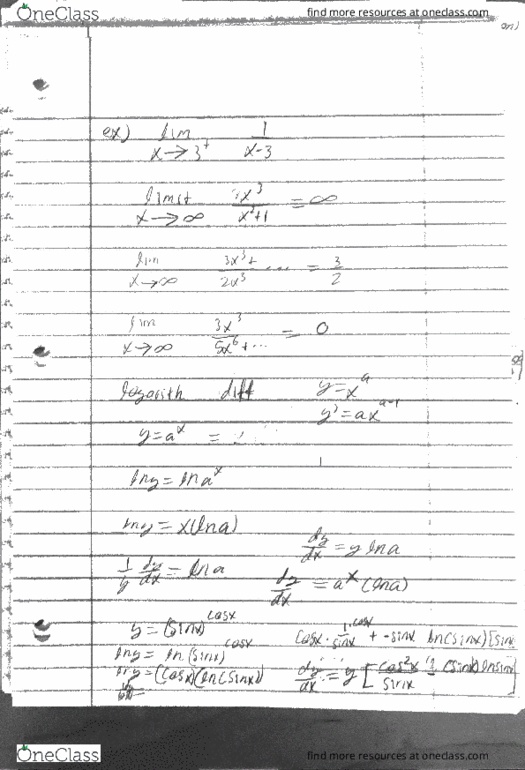 OneClass
find more resources at oneclass.com
ex) lim x→3⁺ 1/(x-3)
limit x→∞ x³/(x²+1) = ∞
lim x→∞ (3x³+ ...)/(2x³) = 3/2
lim x→∞ 3x³/(5x⁶+...) = 0
logarith diff y=x^a
y'=ax^(a-1)
y=a^x =
lny = lna^x
lny = x(lna)
dy/dx = y lna
1/y dy/dx = lna
dy/dx = a^x (lna)
y = (sinx)^cosx
cosx · 1/sinx · cosx + -sinx ln(sinx) [sinx
lny = ln(sinx)^cosx
lny = (cosx)(ln(sinx))
dy/dx = y [cos²x/sinx (sinx)lnsinx]
OneClass
find more resources at oneclass.com